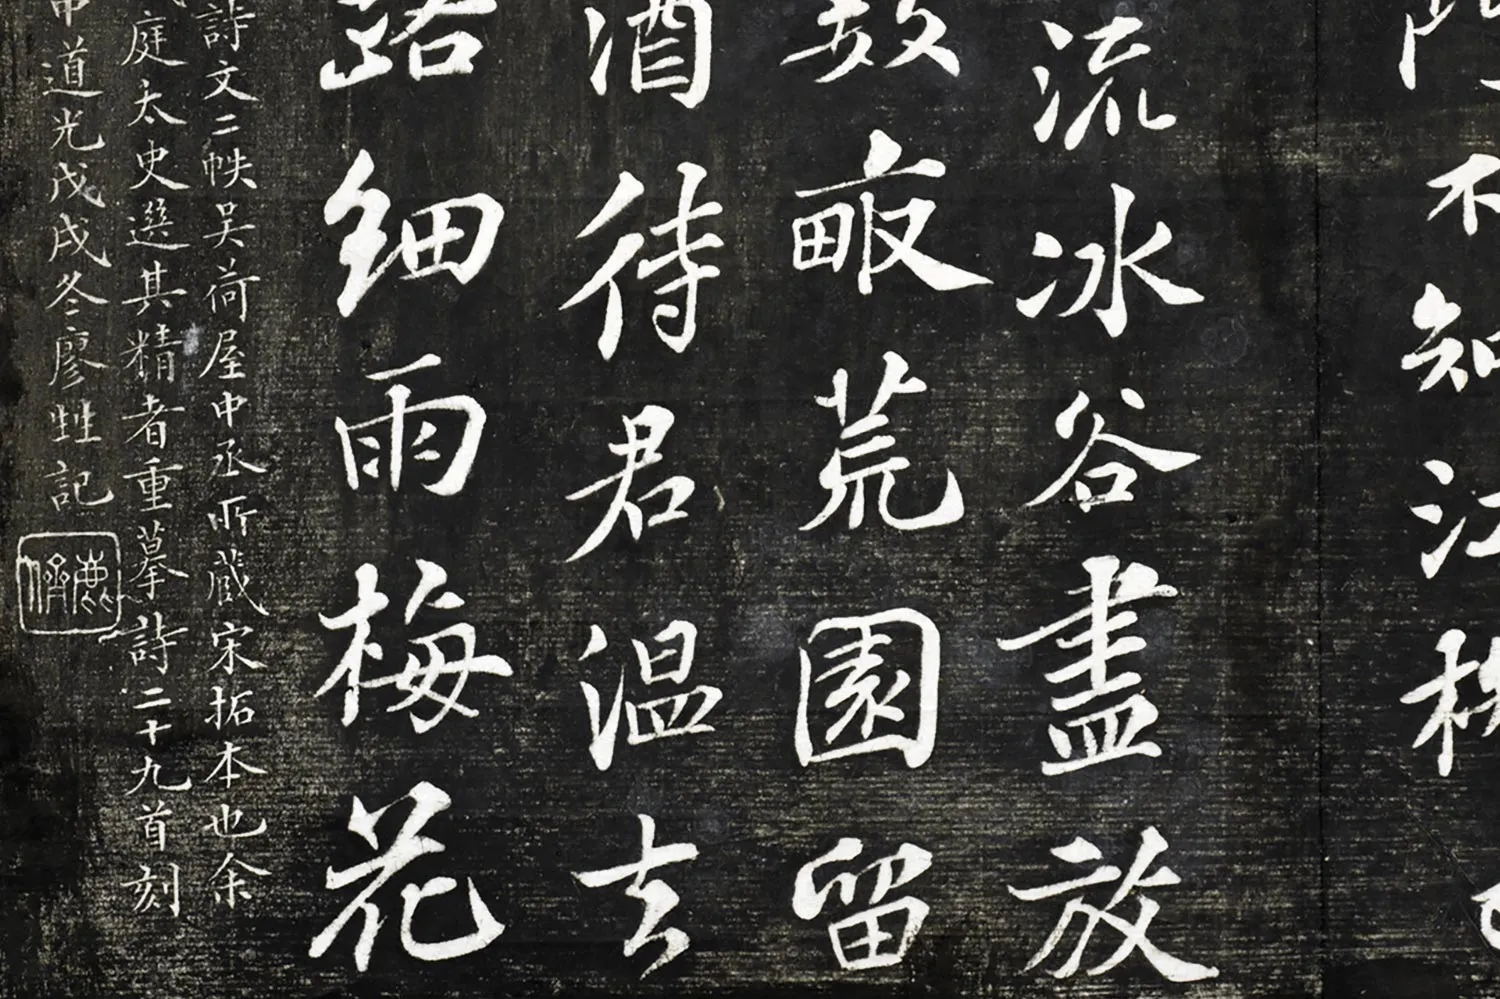 不知江
流冰谷盡放
數畞荒園留
酒待君温去
路細雨梅花
詩文二帙吴荷屋中丞所蔵宋拓本也余
庭太史選其精者重摹詩二十九首刻
道光戊戌冬廖甡記